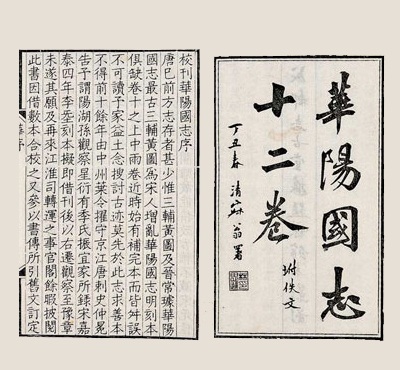 華陽國志
十二卷
坿佚文
丁丑春
校刊華陽國志序
唐已前方志存者甚少惟三輔黃圖及晉常璩華陽
國志最古三輔黃圖為宋人增亂華陽國志明刻本
俱缺卷十之上中兩卷近時始有補完本而皆舛誤
不可讀予家益土念搜討古迹莫先於此志求善本
不得前十餘年由中州葉令擢守京江唐刺史仲冕
告予謂陽湖孫觀察星衍有季氏振宜家所錄宋嘉
泰四年李𡌴刻本擬即借刊後以右遷觀察至豫章
未遂其願及再來江淮司轉運之事官閣餘暇披閱
此書因借數本合校之又參以書傳所引舊文訂定